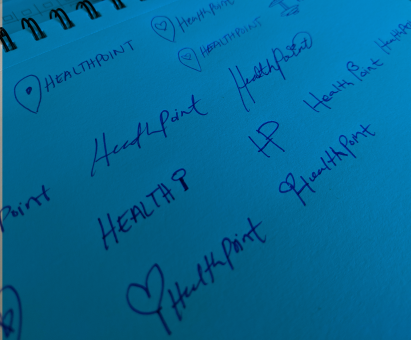 HEALTHPOINT
HealthPoint
HEALTHPOINT
HealthPoint
HealthPoint
HealthPoint
HP
HealthPoint
Point
HEALTH
HealthPoint